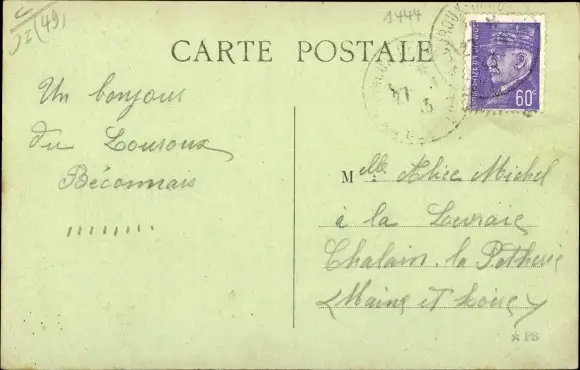 (49)
1444
CARTE POSTALE
60c
27
Un bonjour
du Louroux
Béconnais
Mlle Alice Michel
à la Levraie
Chalain. la Potherie
(Maine et Loire)
PB